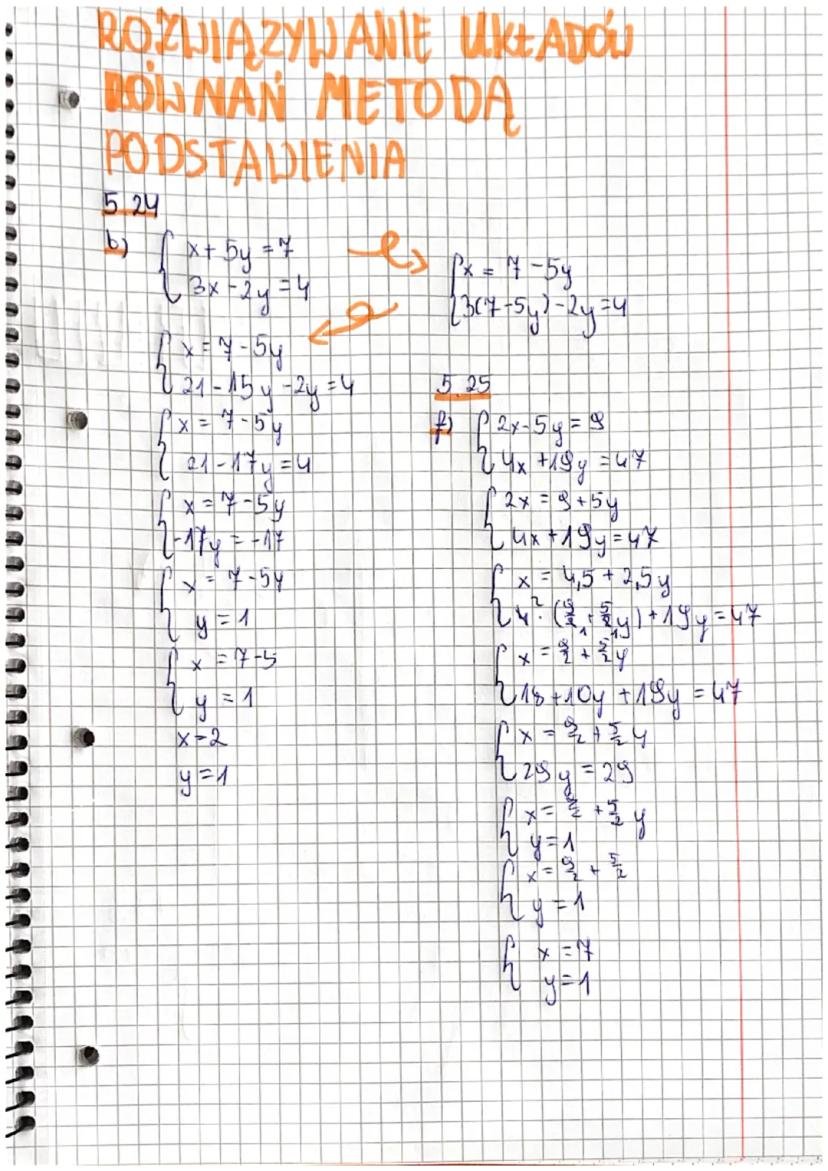 ROZWIĄZYWANIE UKŁADÓW
RÓWNAŃ METODĄ
PODSTAWIENIA
5.24
b) { x + 5y = 7
3x - 2y = 4
{ x = 7 - 5y
3(7 - 5y) - 2y = 4
{ x = 7 - 5y
21 - 15y - 2y = 4
{ x = 7 - 5y
21 - 17y = 4
{ x = 7 - 5y
-17y = -17
{ x = 7 - 5y
y = 1
{ x = 7 - 5
y = 1
x = 2
y = 1
5.25
f) { 2x - 5y = 9
4x + 19y = 47
{ 2x = 9 + 5y
4x + 19y = 47
{ x = 4,5 + 2,5y
4² · (9/2₁ + 5/2₁y) + 19y = 47
{ x = 9/2 + 5/2y
18 + 10y + 19y = 47
{ x = 9/2 + 5/2y
29y = 29
{ x = 9/2 + 5/2y
y = 1
{ x = 9/2 + 5/2
y = 1
{ x = 7
y = 1